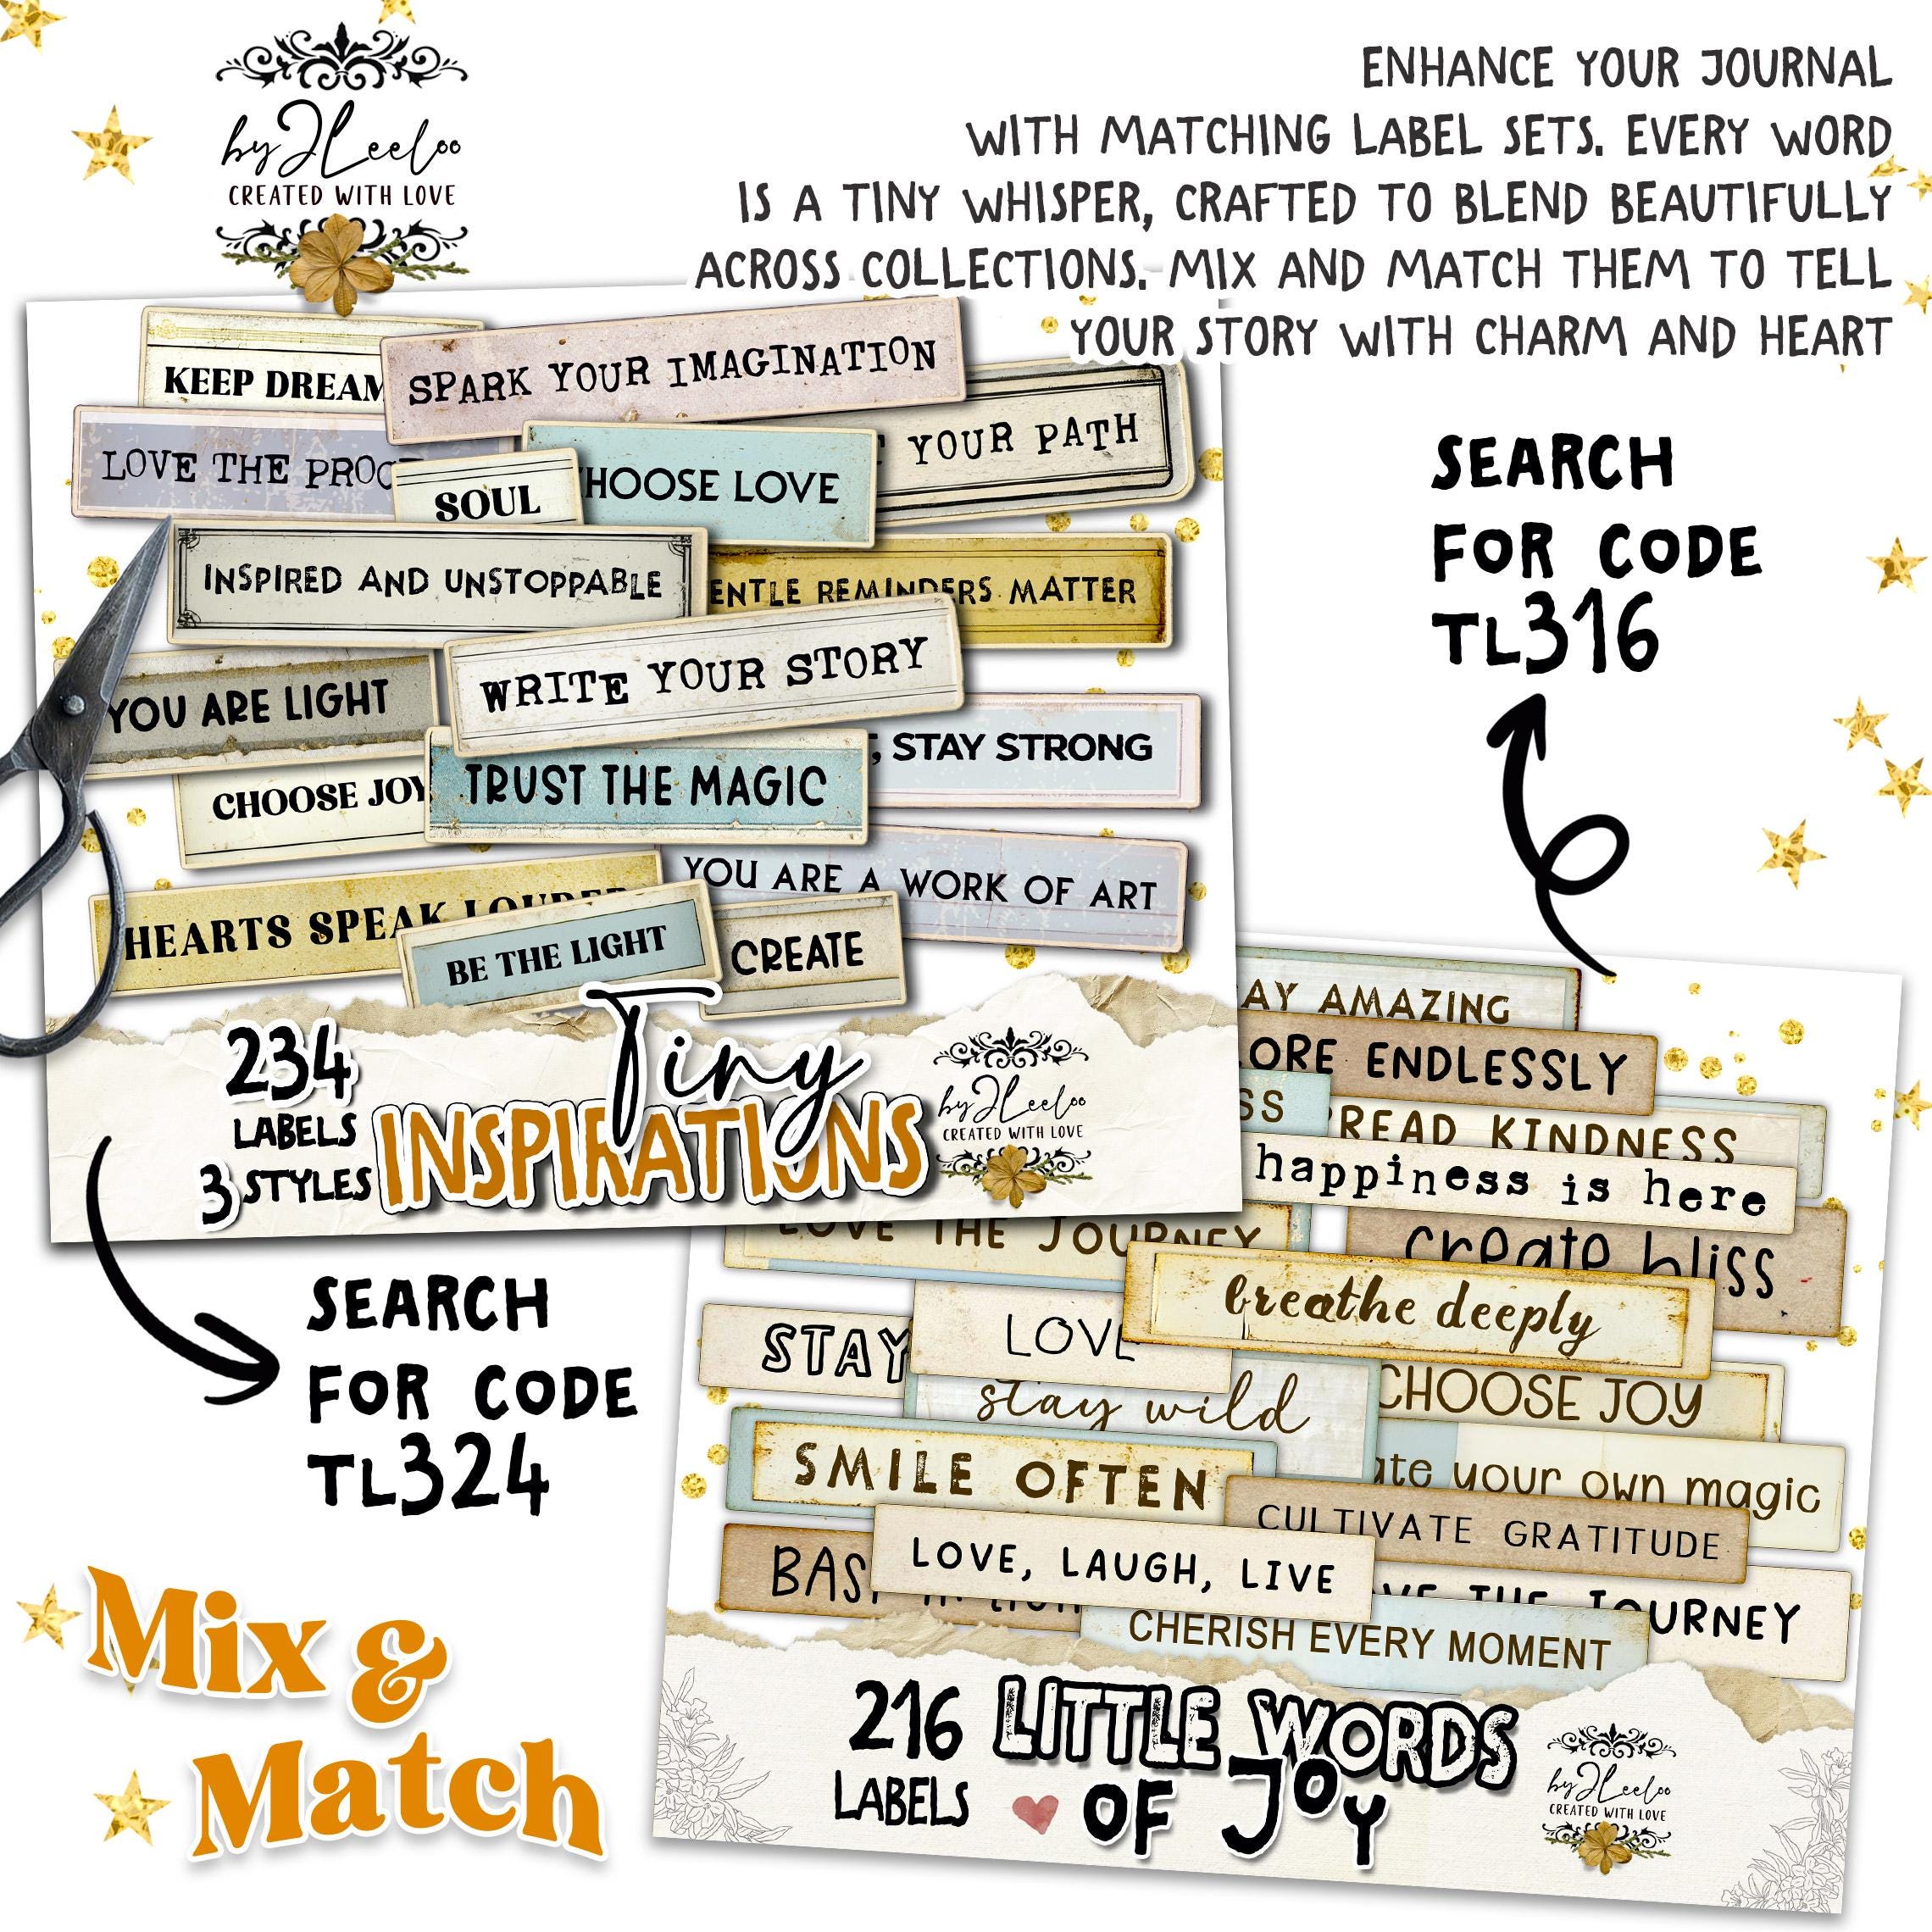 byJLeeloo
CREATED WITH LOVE
ENHANCE YOUR JOURNAL
WITH MATCHING LABEL SETS. EVERY WORD
IS A TINY WHISPER, CRAFTED TO BLEND BEAUTIFULLY
ACROSS COLLECTIONS. MIX AND MATCH THEM TO TELL
YOUR STORY WITH CHARM AND HEART
KEEP DREAM
SPARK YOUR IMAGINATION
YOUR PATH
LOVE THE PROC
SOUL
HOOSE LOVE
INSPIRED AND UNSTOPPABLE
ENTLE REMINDERS MATTER
WRITE YOUR STORY
YOU ARE LIGHT
, STAY STRONG
CHOOSE JOY
TRUST THE MAGIC
YOU ARE A WORK OF ART
HEARTS SPEAK LOUDER
BE THE LIGHT
CREATE
234
LABELS
3 STYLES
Tiny
INSPIRATIONS
byJLeeloo
CREATED WITH LOVE
SEARCH
FOR CODE
TL316
SEARCH
FOR CODE
TL324
AY AMAZING
LORE ENDLESSLY
SS
PREAD KINDNESS
happiness is here
LOVE THE JOURNEY
create bliss
breathe deeply
STAY
LOVE
stay wild
CHOOSE JOY
SMILE OFTEN
ate your own magic
CULTIVATE GRATITUDE
BAS
LOVE, LAUGH, LIVE
VE THE JOURNEY
CHERISH EVERY MOMENT
216
LABELS
LITTLE WORDS
OF JOY
byJLeeloo
CREATED WITH LOVE
Mix &
Match